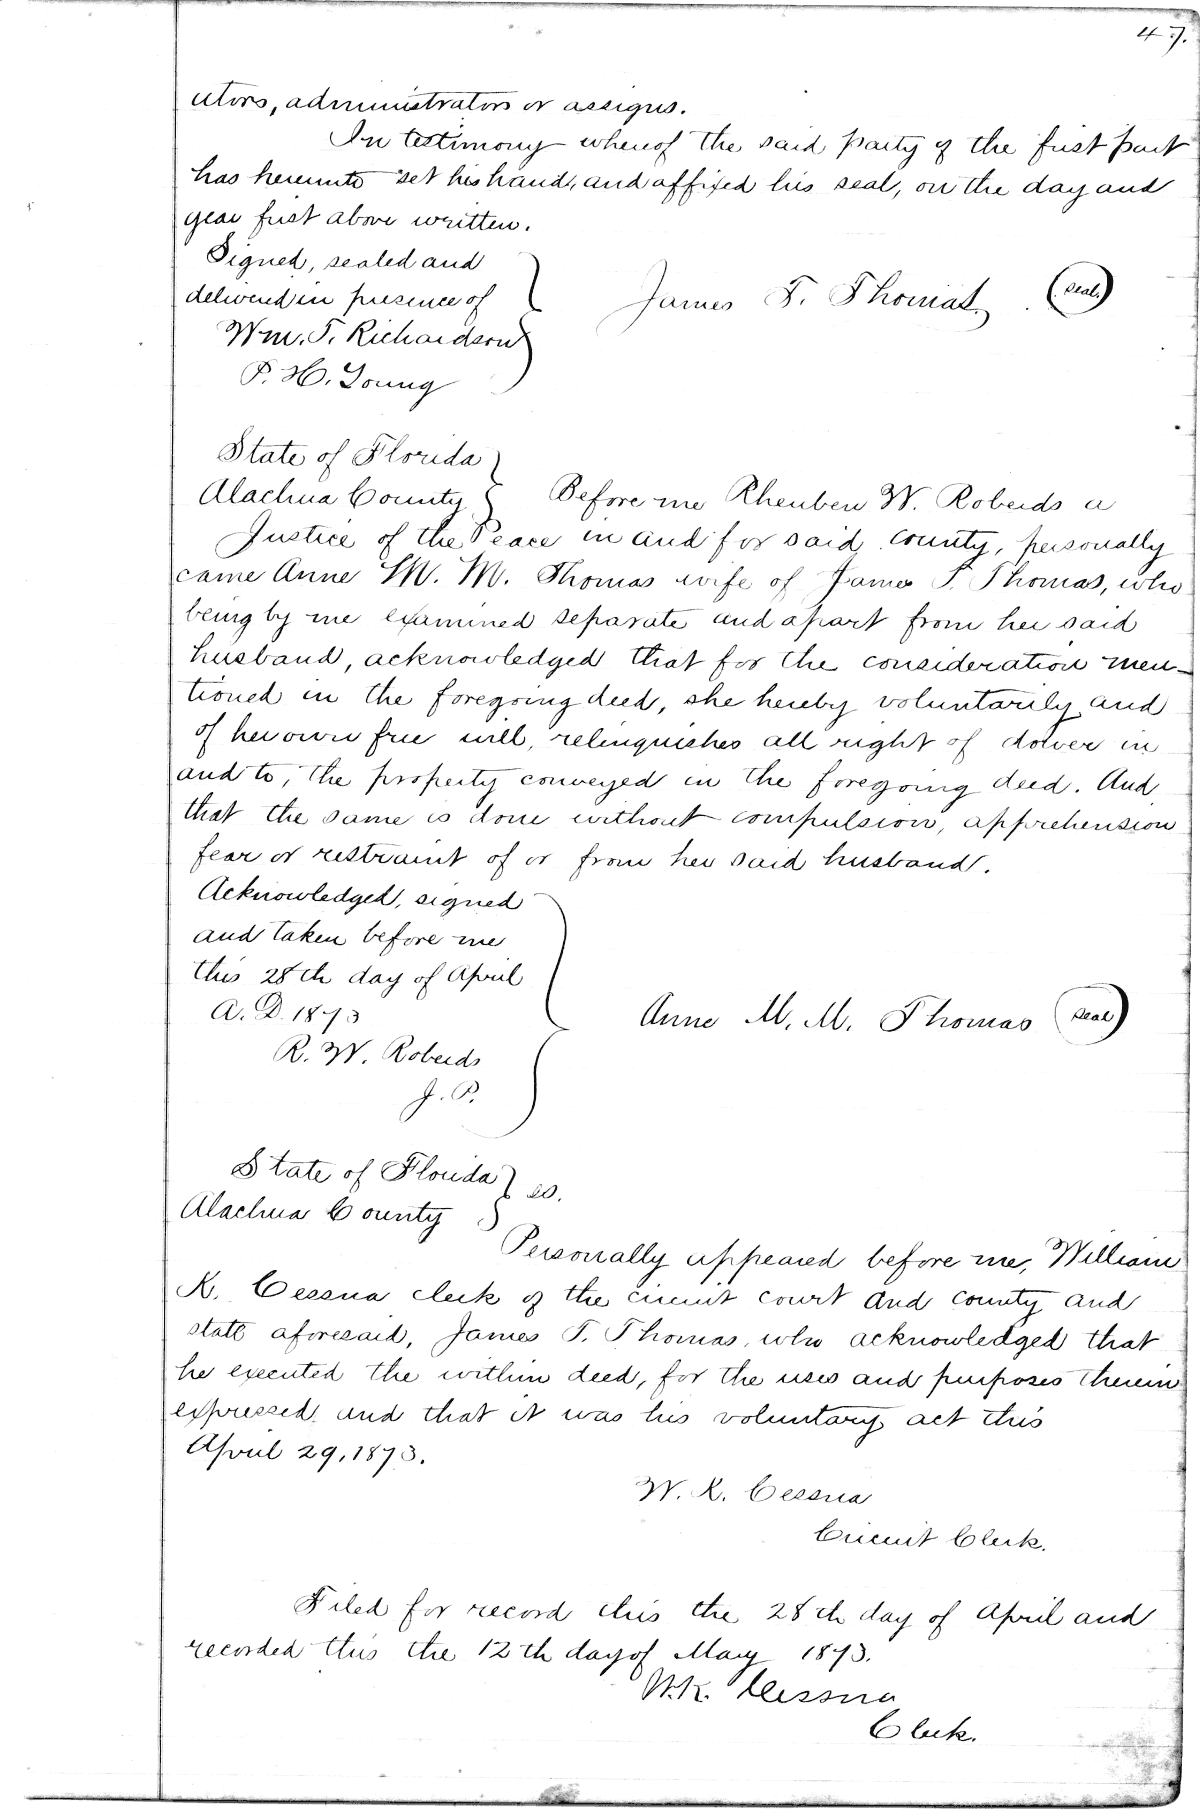 47.
utors, administrators or assigns.
In testimony whereof the said party of the first part
has hereunto set his hand, and affixed his seal, on the day and
year first above written.
Signed, sealed and
delivered in presence of
James T. Thomas (seal.)
Wm. T. Richardson
P. H. Young
State of Florida
Alachua County Before me Rheuben W. Roberds a
Justice of the Peace in and for said county, personally
came Anne M. M. Thomas wife of James T. Thomas, who
being by me examined separate and apart from her said
husband, acknowledged that for the consideration men-
tioned in the foregoing deed, she hereby voluntarily and
of her own free will, relinquishes all right of dower in
and to, the property conveyed in the foregoing deed. And
that the same is done without compulsion, apprehension
fear or restraint of or from her said husband.
Acknowledged, signed
and taken before me
this 28th day of April
A. D. 1873
Anne M. M. Thomas (seal)
R. W. Roberds
J. P.
State of Florida
Alachua County ss.
Personally appeared before me, William
K. Cessna clerk of the circuit court and county and
state aforesaid, James T. Thomas, who acknowledged that
he executed the within deed, for the uses and purposes therein
expressed and that it was his voluntary act this
April 29, 1873.
W. K. Cessna
Circuit Clerk.
Filed for record this the 28th day of April and
recorded this the 12th day of May 1873.
W. K. Cessna
Clerk.